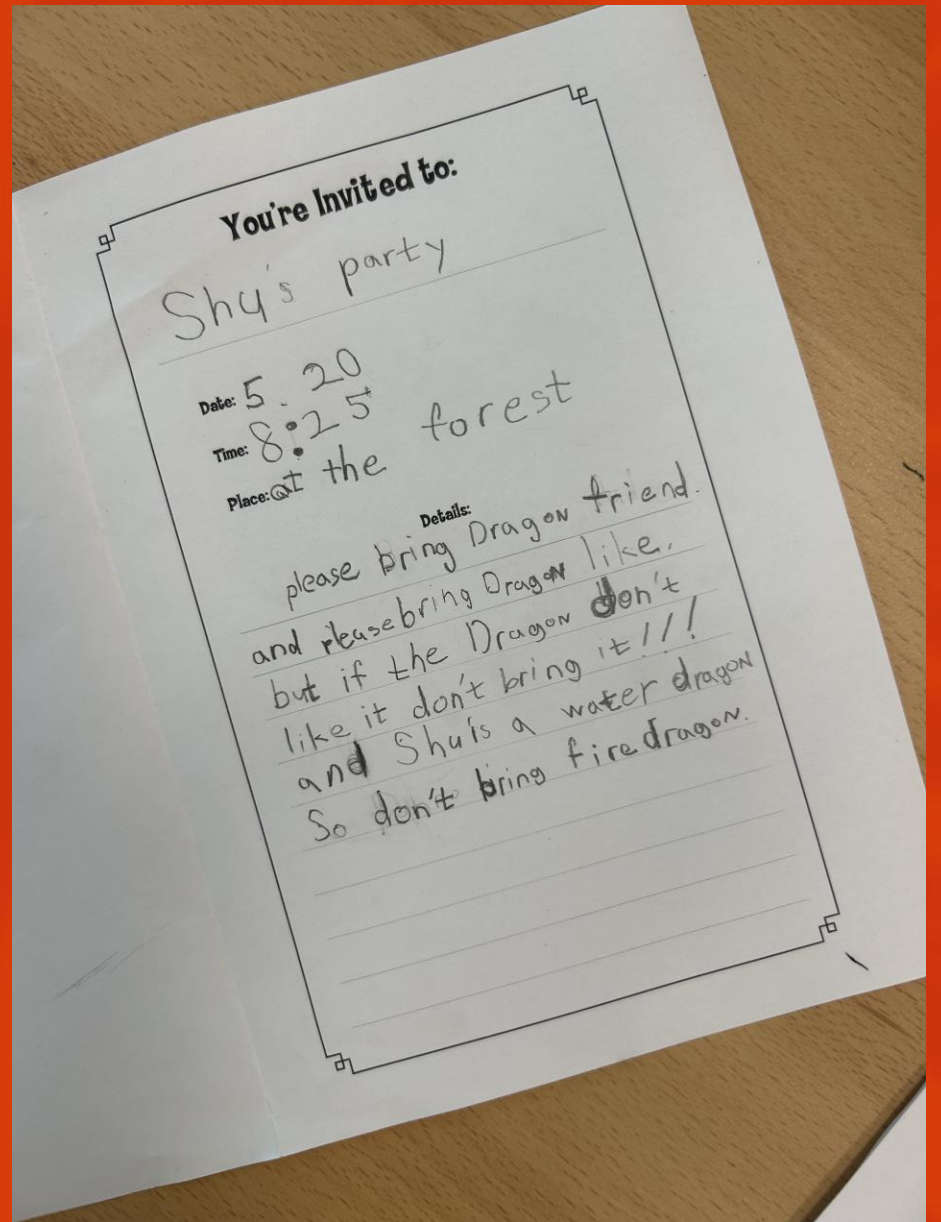 You're Invited to:
Shu's party
Date: 5. 20
Time: 8:25
Place: at the forest
Details:
please bring Dragon friend.
and please bring Dragon like.
but if the Dragon don't
like it don't bring it!!!
and Shu is a water dragon
So don't bring firedragon.